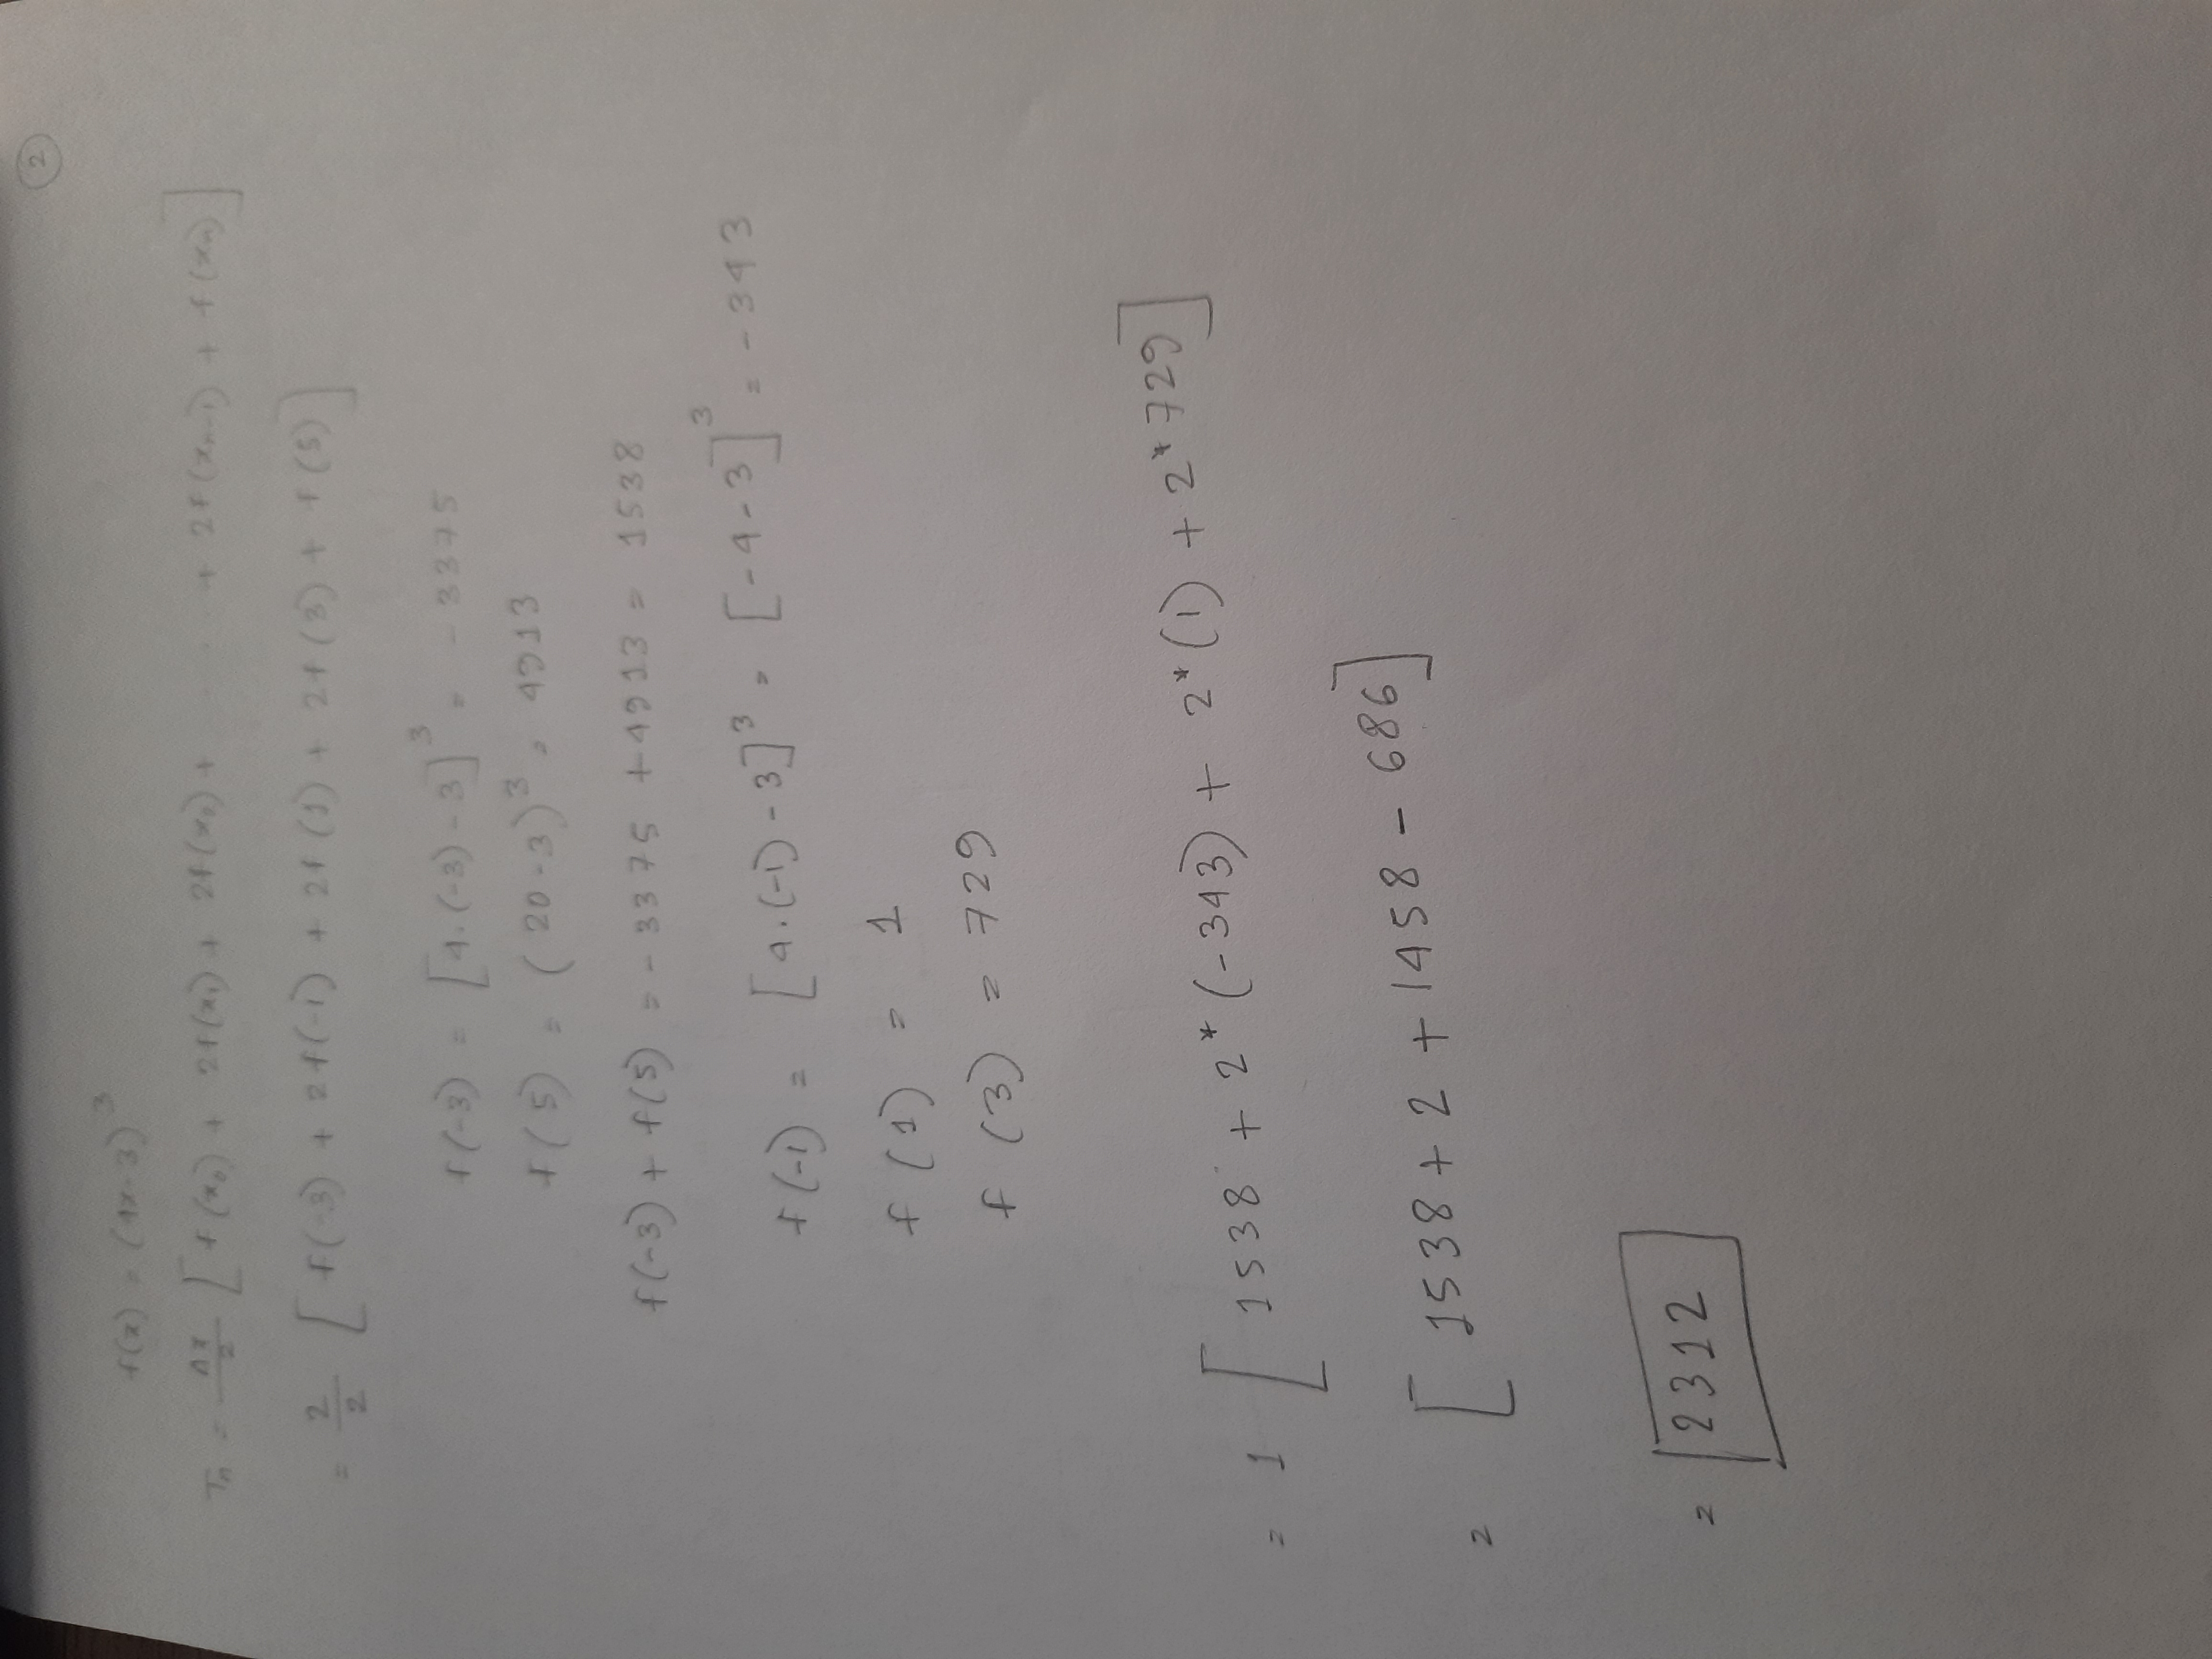 2
f(x) = (4x-3)^3
Tn = Δx/2 [f(x₀) + 2f(x₁) + 2f(x₂) + . . . + 2f(xn-1) + f(xn)]
= 2/2 [f(-3) + 2f(-1) + 2f(1) + 2f(3) + f(5)]
f(-3) = [4.(-3)-3]^3 = -3375
f(5) = (20-3)^3 = 4913
f(-3) + f(5) = -3375 + 4913 = 1538
f(-1) = [4.(-1)-3]^3 = [-4-3]^3 = -343
f(1) = 1
f(3) = 729
= 1 [1538 + 2*(-343) + 2*(1) + 2*729]
= [1538 + 2 + 1458 - 686]
= 2312